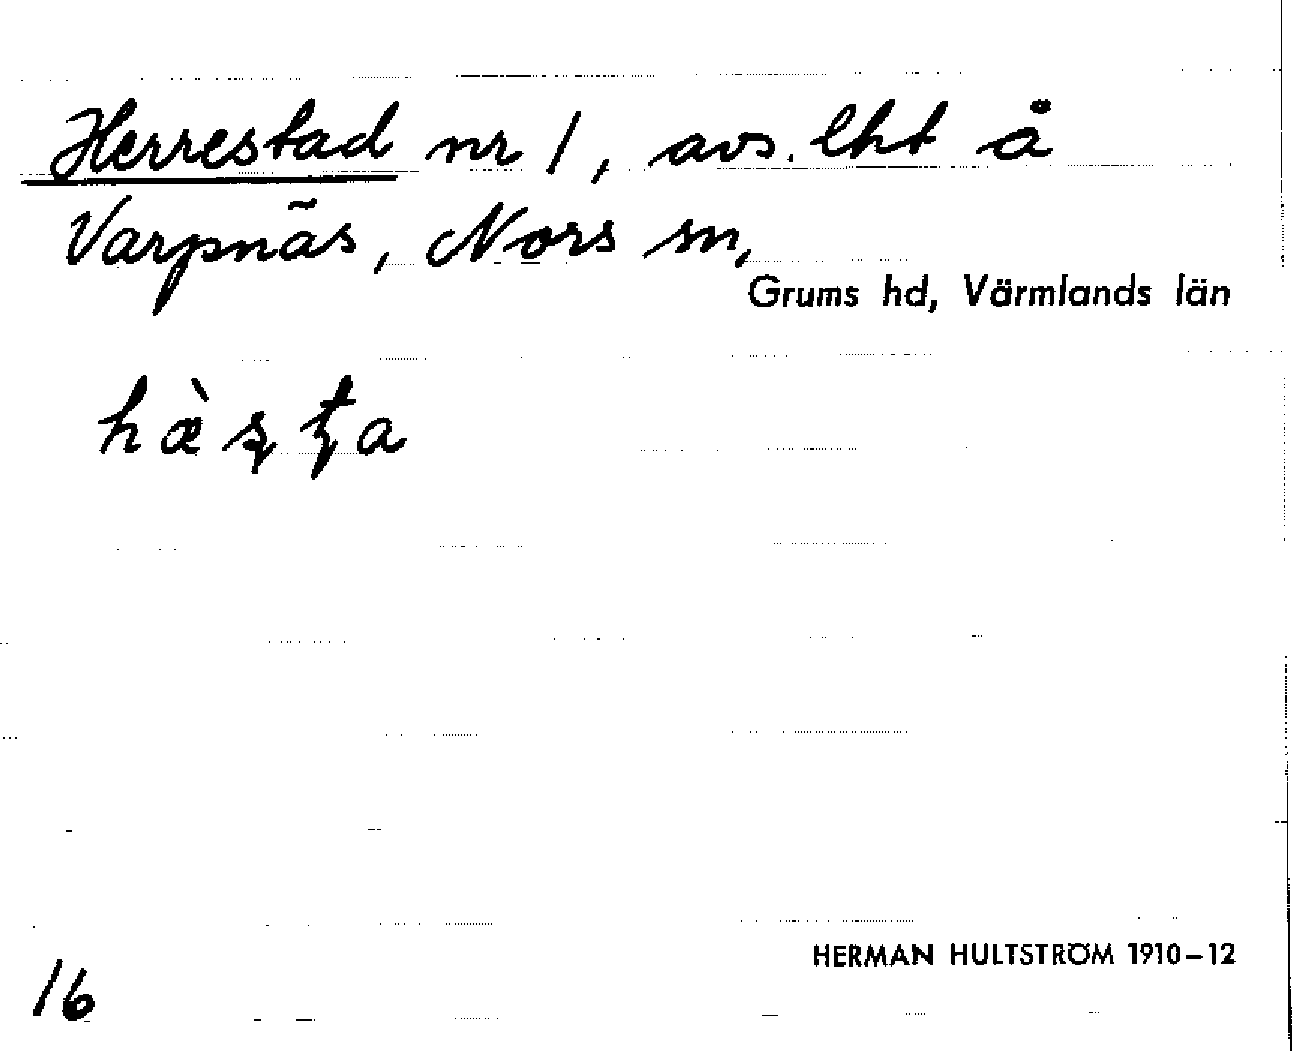 Herrestad nr 1, avs. lht å
Varpnäs, Nors sn,
Grums hd, Värmlands län
hæ̀ʂʈa
HERMAN HULTSTRÖM 1910–12
16